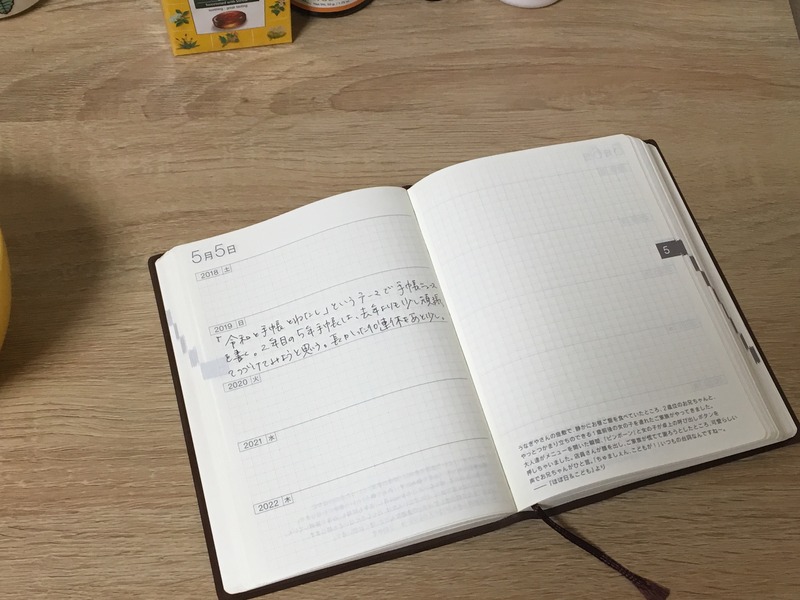 5月5日
2018 土
2019 日
「令和と手帳とわたし」というテーマで手帳ニュース
を書く。2年目の5年手帳は、去年よりも少し頑張っ
てつづけてみようと思う。長かった10連休もあと少し。
2020 火
2021 水
2022 木
5
うなぎやさんの座敷で静かにお昼ご飯を食べていたところ、7歳位のお兄ちゃんと、
やっとつかまり立ちのできる1歳前後の女の子を連れたご家族がやってきました。
大人達がメニューを開いた瞬間、「ピンポーン!」と女の子が卓上の呼び出しボタンを
押しちゃいました。店員さんが顔を出し、ご家族が慌てて謝ろうとしたところ、可愛らしい
声でお兄ちゃんがひと言。「ちゅましぇん、こどもが!」いつもの台詞なんですね〜。
——『ほぼ日もこども』より